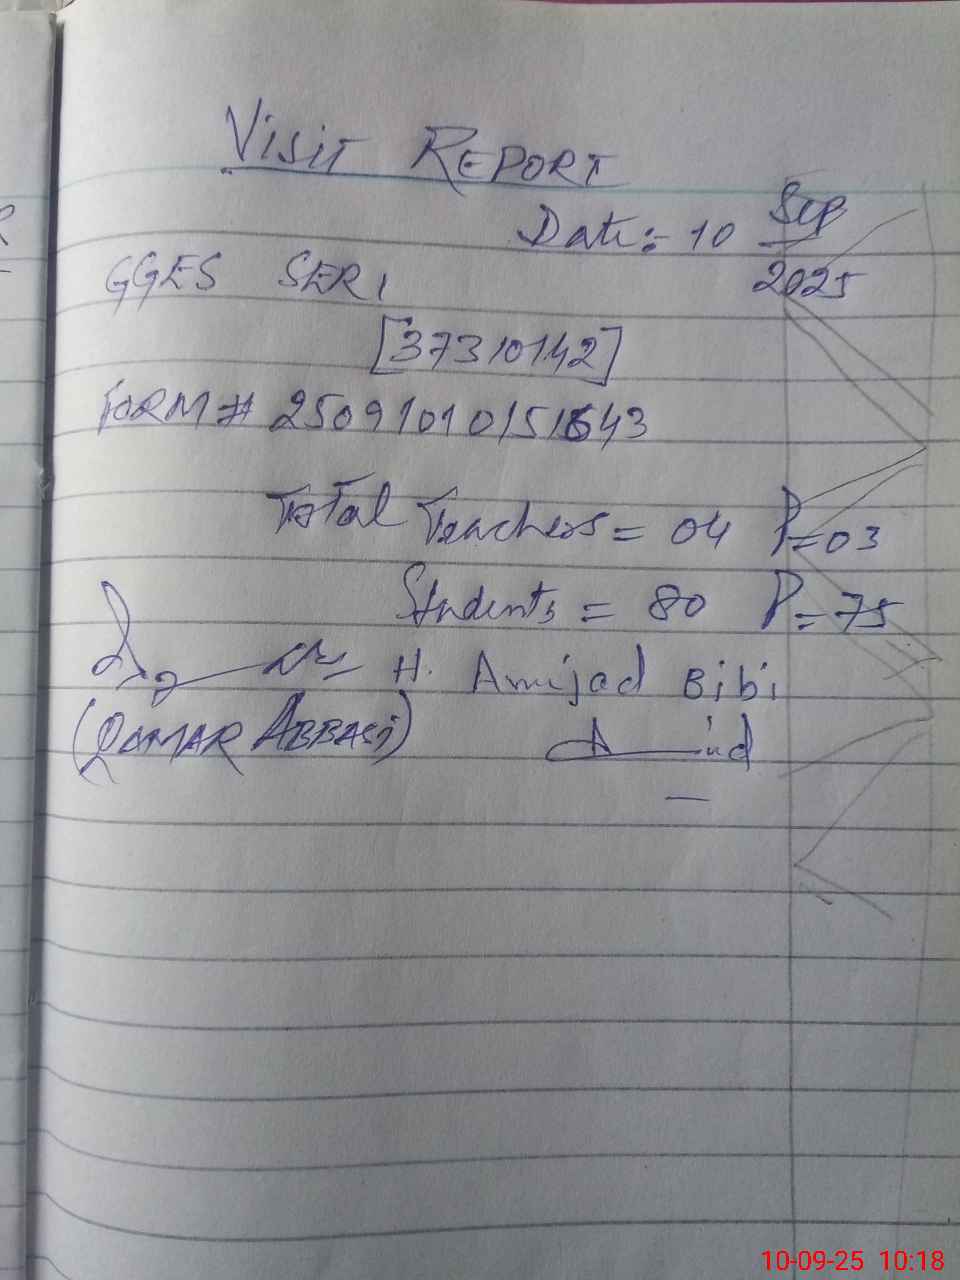 VISIT REPORT
Date:- 10 Sep
2025
GGES SERI
[37310142]
FORM# 25091010151643
Total Teachers = 04 P=03
Students = 80 P=75
H. Amjad Bibi
(QAMAR ABBASI)
10-09-25 10:18